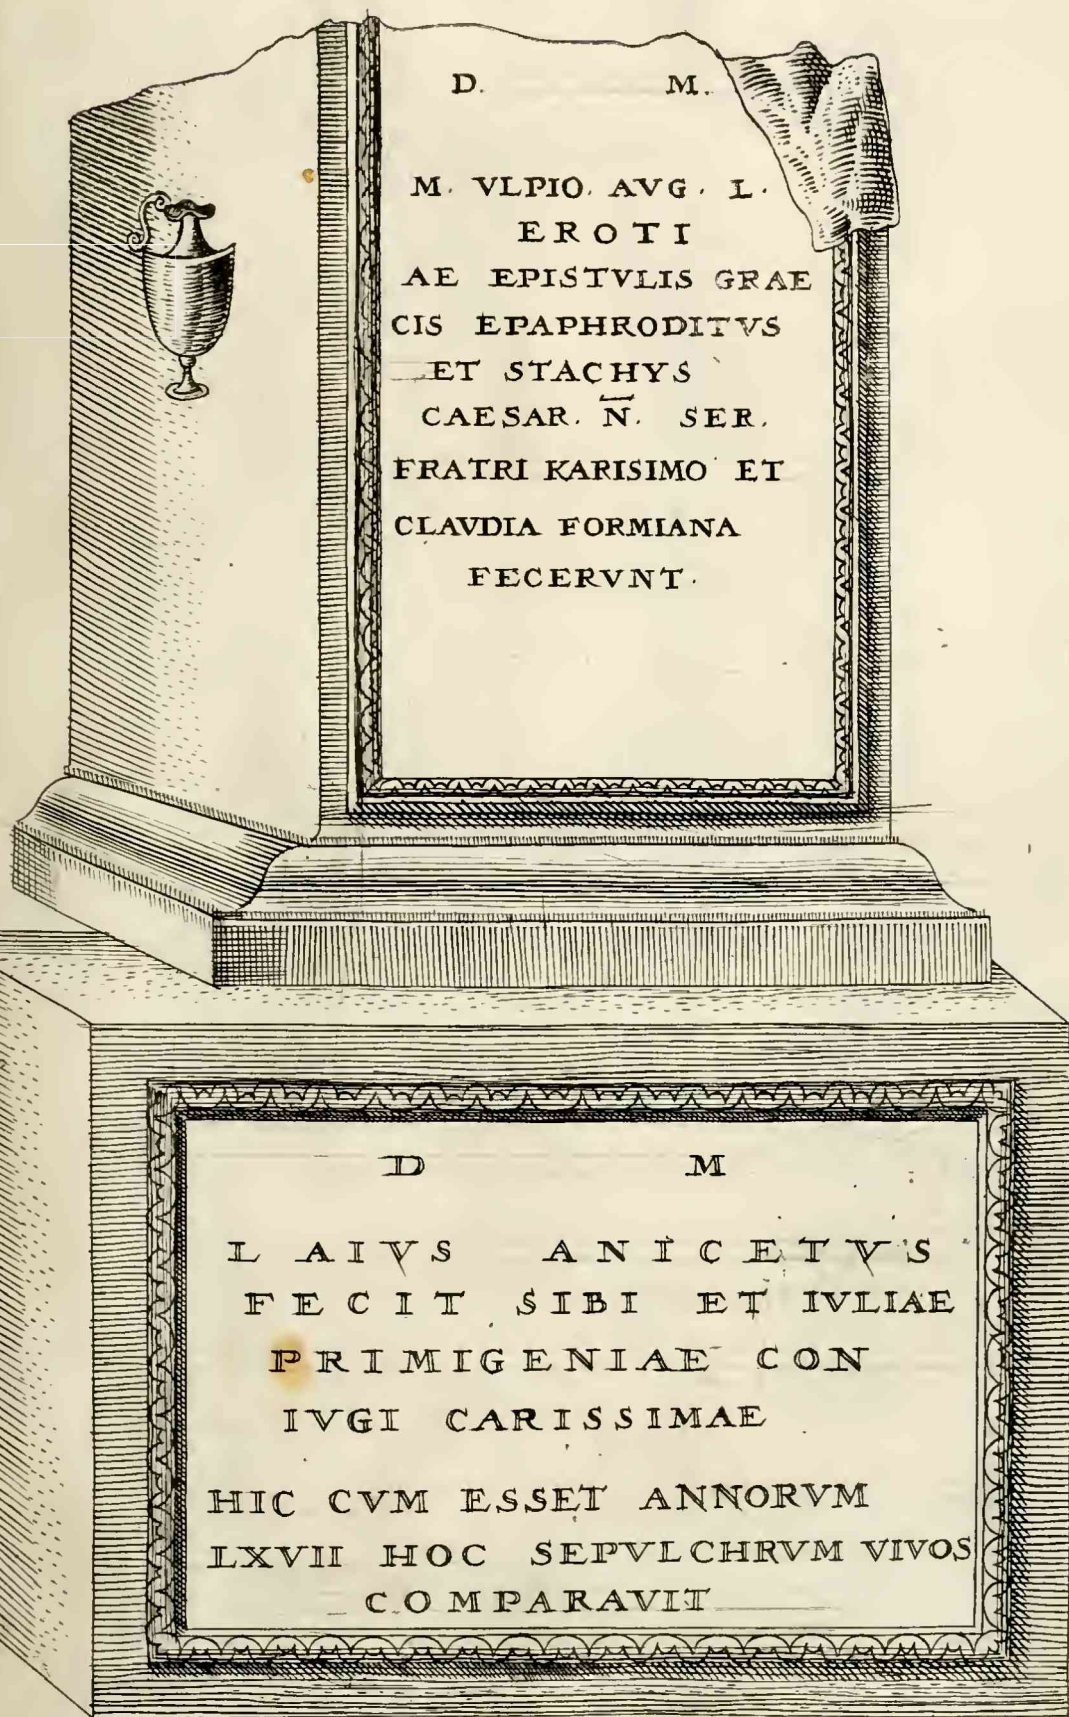 D. M.
M. VLPIO. AVG. L.
EROTI
AE EPISTVLIS GRAE
CIS EPAPHRODITVS
ET STACHYS
CAESAR. N̅. SER.
FRATRI KARISIMO ET
CLAVDIA FORMIANA
FECERVNT.
D M
L AIVS ANICETVS
FECIT SIBI ET IVLIAE
PRIMIGENIAE CON
IVGI CARISSIMAE
HIC CVM ESSET ANNORVM
LXVII HOC SEPVLCHRVM VIVOS
COMPARAVIT